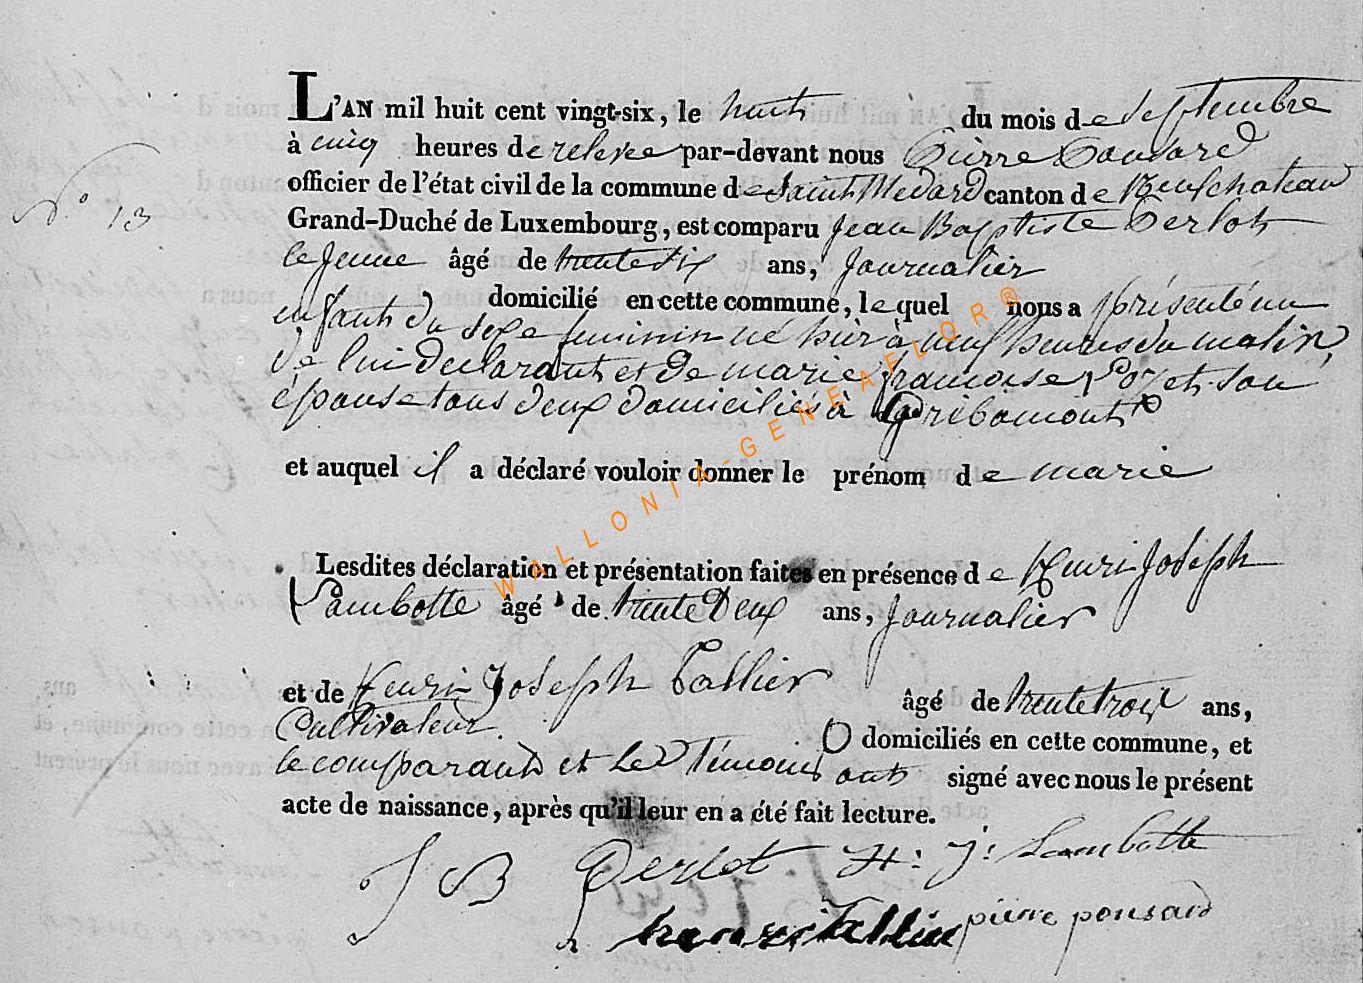 L'AN mil huit cent vingt-six, le huit du mois de Septembre
à cinq heures de relevée par-devant nous Pierre Ponsard
officier de l'état civil de la commune de Saint Medard canton de Neufchateau
N.° 13
Grand-Duché de Luxembourg, est comparu Jean Baptiste Perlot
le Jeune âgé de trente six ans, Journalier
domicilié en cette commune, lequel nous a présenté un
enfant du sexe feminin né hier à neuf heures du matin,
de lui declarant et de marie françoise son
épouse tous deux domiciliés à Gribomont
et auquel il a déclaré vouloir donner le prénom de marie
Lesdites déclaration et présentation faites en présence de Henri Joseph
Lambotte âgé de trente Deux ans, Journalier
et de Henri Joseph Tallier âgé de trente trois ans,
Cultivateur. domiciliés en cette commune, et
le comparant et les Témoins ont signé avec nous le présent
acte de naissance, après qu'il leur en a été fait lecture.
J B Perlot H: J: Lambotte
henri tallier pierre ponsard
WALLONIA-GENEAFLOR®